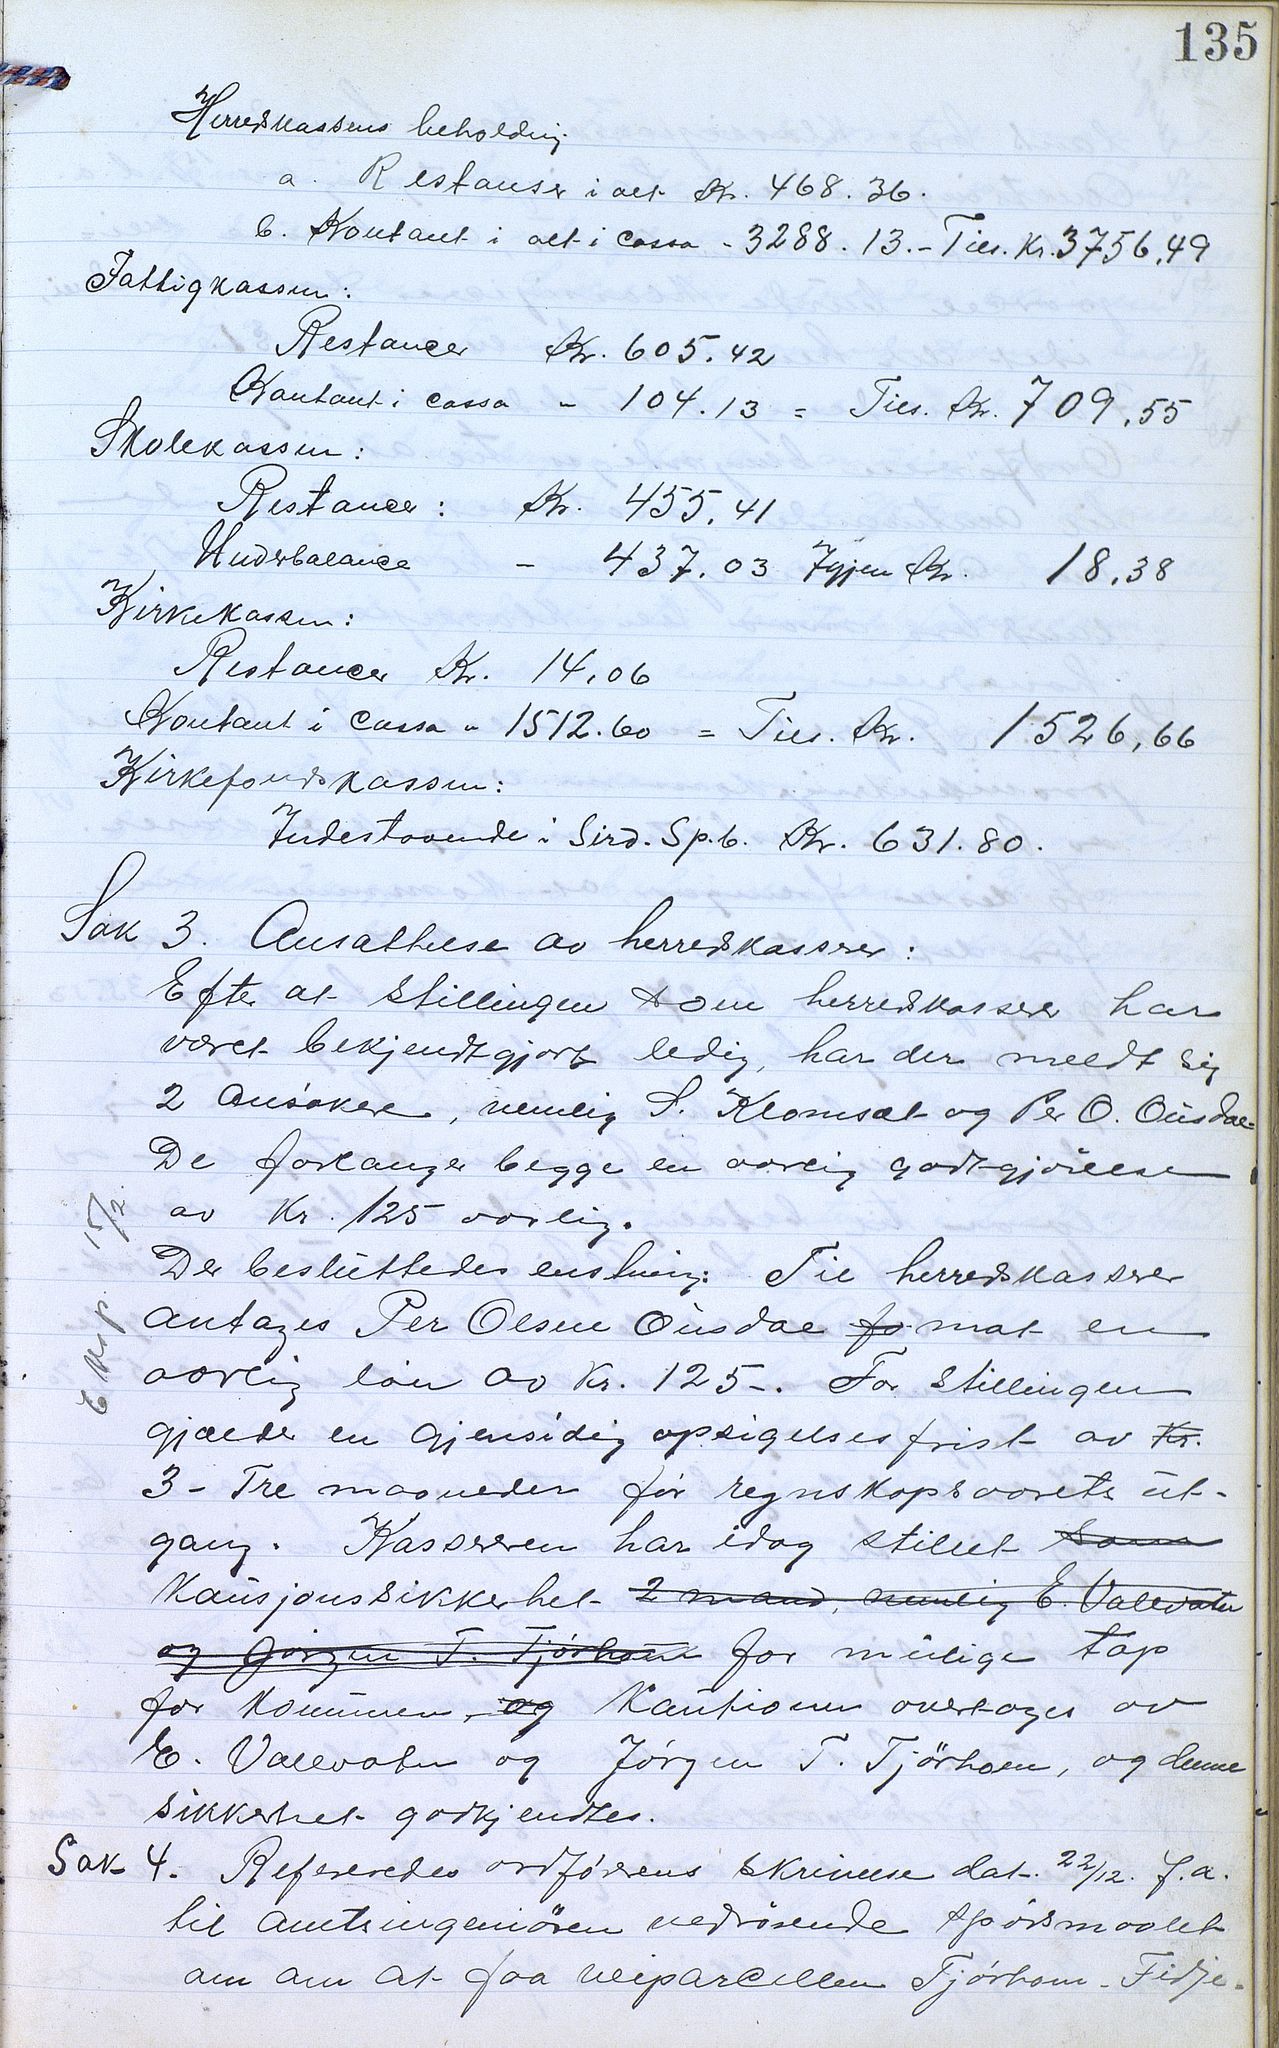 135
Herredskassens beholdnig.
a. Restanser i alt Kr. 468.36.
b. Kontant i alt i cassa - 3288.13. - Tils. Kr. 3756,49
Fattigkassen:
Restancer Kr. 605.42
Kontant i cassa - 104.13 = Tils. Kr. 709.55
Skolekassen:
Restancer: Kr. 455.41
Underbalance - 437.03 Igjen Kr. 18.38
Kirkekassen:
Restancer Kr. 14,06
Kontant i cassa - 1512.60 = Tils. Kr. 1526,66
Kirkefondskassen:
Indestaaende i Sird. Sp.b. Kr. 631.80.
Sak 3. Ansættelse av herredskasserer:
Efter at stillingen som herredskasserer har
været bekjendtgjort ledig, har der meldt sig
2 ansøkere, nemlig S. Klomset og Per O. Ousdal.
De forlanger begge en aarlig godtgjörelse
av Kr. 125 aarlig.
Der besluttedes enstemig: Til herredskasserer
antages Per Olsen Ousdal fo mot en
aarlig løn av Kr. 125-. For stillingen
gjælder en gjensidig opsigelsesfrist av Kr.
3 - Tre maaneder før regnskapsaarets ut-
gang. Kassereren har idag stillet som
Kausjonssikkerhet 2 mand, nemlig E. Vallvatn
og Jørgen T. Tjørhom for mulige tap
for Kommunen, og Kautionen overtages av
E. Vallvatn og Jørgen T. Tjörhom, og denne
sikkerhet godkjendtes.
Eksp. 15/2
Sak 4. Refereredes ordførerens skrivelse dat. 22/12. f.a.
til amtsingeniören vedrörende spörsmaalet
om om at faa veiparcellen Tjørhom - Fidje-